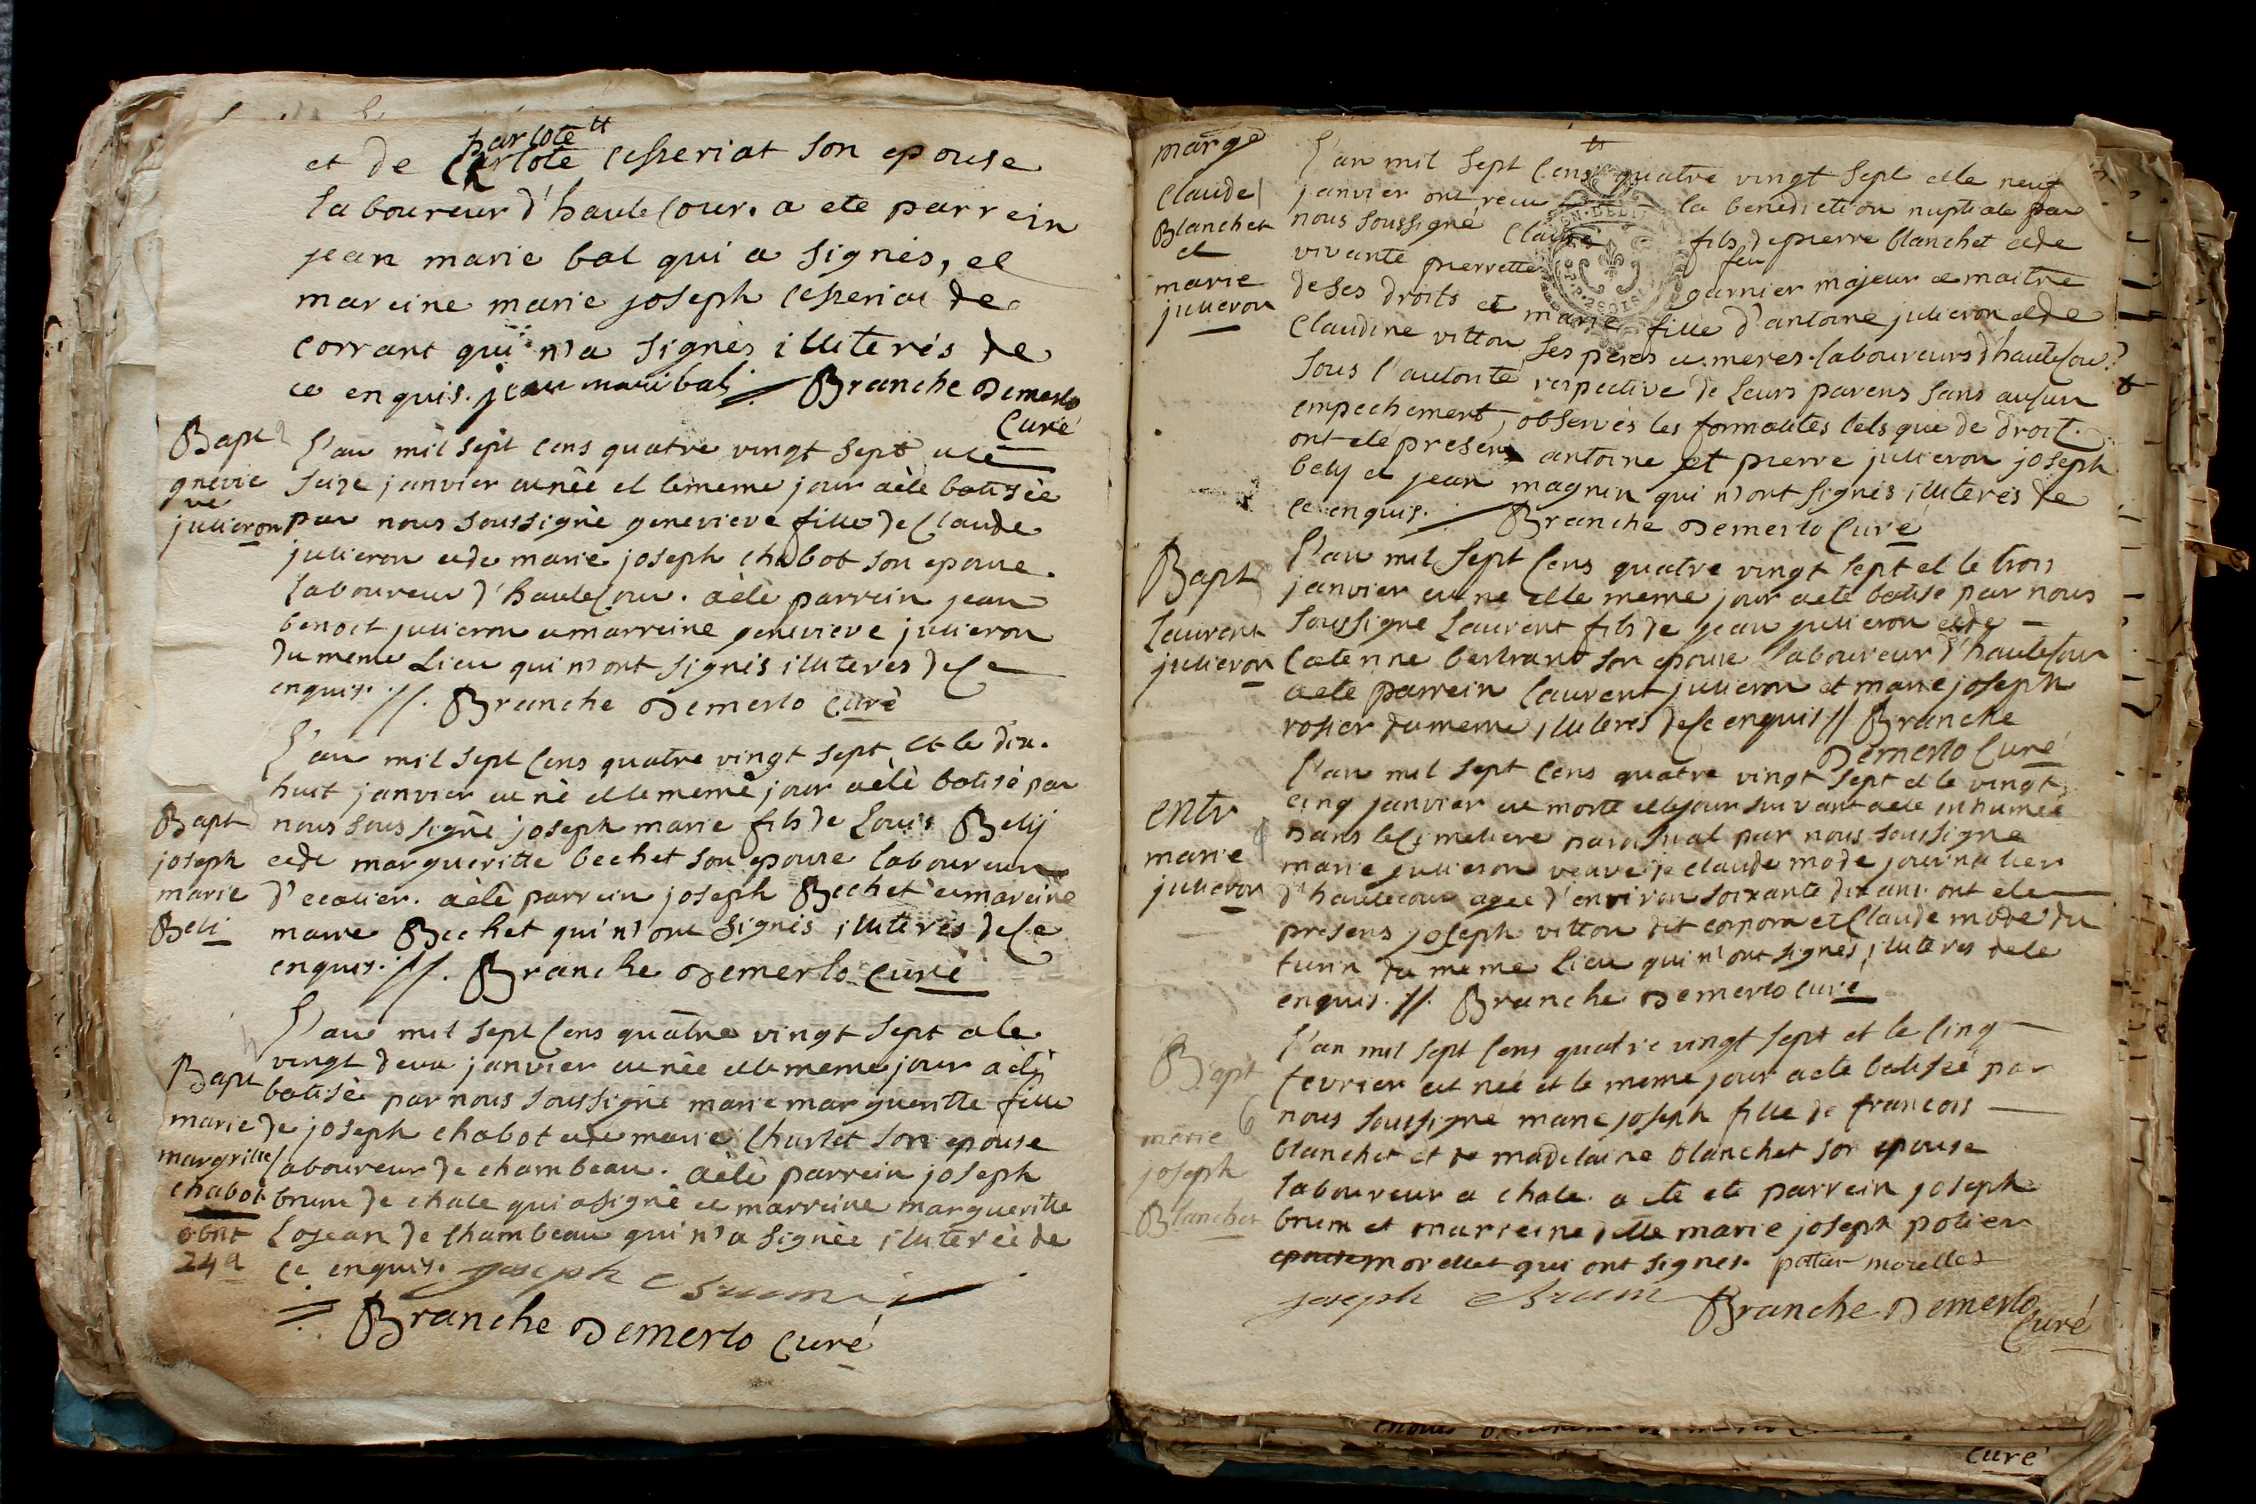 et de Charlotte cesseriat son epouse
laboureur d'hautecour. a ete parrein
jean marie bal qui a signés, et
mareine marie joseph cesseriat de
corrant qui n'a signés illiterés de
ce enquis. jean mari bal // Branche Demerlo
Curé
Bapt
gnevie
ve
julieron
L'an mil sept cens quatre vingt sept et le
seize janvier est née et le meme jour a été batisée
par nous soussigné genevieve fille de Claude
julieron et de marie joseph chabot son epouse
laboureur d'hautecour. a été parrein jean
benoit julieron et marreine genevieve julieron
du meme Lieu qui n'ont signés illiterés de ce
enquis. //. Branche Demerlo curé
Bapt
joseph
marie
Beli
L'an mil sept cens quatre vingt sept et le dix
huit janvier est né et le meme jour a été batisé par
nous soussigné joseph marie fils de Louis Belij
et de margueritte bechet son epouse laboureur
d'ecolier. a été parrein joseph Bechet et mareine
marie Bechet qui n'ont signés illiterés de ce
enquis. //. Branche Demerlo curé
Bapt
marie
margritte
chabot
obiit
24a
L'an mil sept cens quatre vingt sept et le
vingt deux janvier est née et le meme jour a été
batisée par nous soussigné marie margueritte fille
de joseph chabot et de marie Charlet son epouse
laboureur de chambeau. a été parrein joseph
brum de chale qui a signé et marreine margueritte
Lojean de Chambeau qui n'a signée illiterée de
ce enquis. joseph Brum
Branche Demerlo Curé
marge
Claude
Blanchet
et
marie
julieron
L'an mil sept cens quatre vingt sept et le neuf
janvier ont recu la benediction nuptiale par
nous soussigné Claude fils de pierre blanchet et de
vivante pierrette feu garnier majeur et maitre
de ses droits et marie fille d'antoine julieron et de
Claudine vitton ses peres et meres laboureurs d'hautecour
sous l'autorité respective de leurs parens sans aucun
empechement, observés les formalites tels que de droit.
ont eté presens antoine et pierre julieron joseph
belij et jean magnin qui n'ont signés illiterés de
ce enquis. // Branche Demerlo Curé
Bapt
laurent
julieron
L'an mil sept cens quatre vingt sept et le trois
janvier est né et le meme jour a eté batisé par nous
soussigné Laurent fils de jean julieron et de
Caterine bertrand son epouse laboureur d'hautecour
a eté parrein laurent julieron et marie joseph
rosier du meme illiterés de ce enquis // Branche
Demerlo Curé
entr
marie
julieron
L'an mil sept cens quatre vingt sept et le vingt
cinq janvier est morte et le jour suivant a eté inhumée
dans le Cimetiere paroissial par nous soussigné
marie julieron veuve de claude mode journalier
d'hautecour agée d'environ soixante dix ans. ont eté
presens joseph vitton dit corpora et Claude mode du
turin du meme lieu qui n'ont signés illiterés de ce
enquis. //. Branche Demerlo curé
Bapt
marie
joseph
Blanchet
L'an mil sept cens quatre vingt sept et le Cinq
fevrier est née et le meme jour a eté batisée par
nous soussigné marie joseph fille de francois
blanchet et de madelaine blanchet son epouse
laboureur a chale. a ete eté parrein joseph
brum et marreine dlle marie joseph potier
epouse morellet qui ont signes. potier morellet
joseph Brum Branche Demerlo
Curé
curé